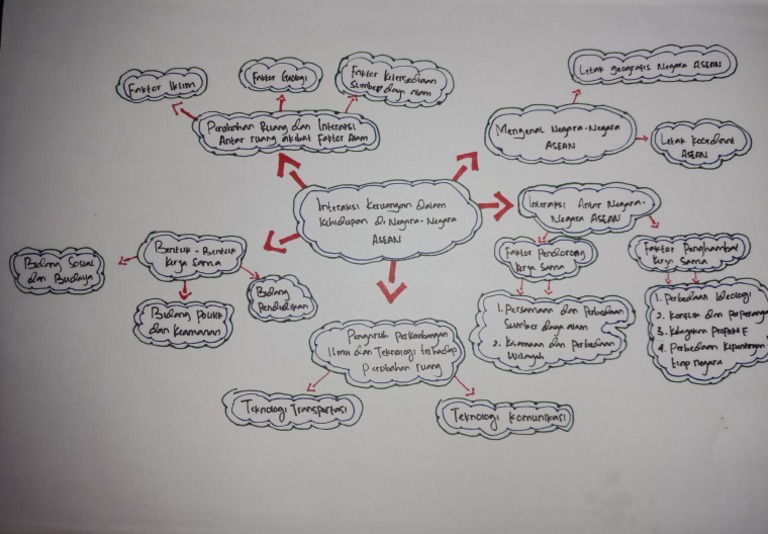 Interaksi Keruangan Dalam
Kehidupan di Negara-Negara
ASEAN
Perubahan Ruang dan Interaksi
Antar ruang akibat Faktor Alam
Faktor Iklim
Faktor Geologi
Faktor Ketersediaan
Sumber daya alam
Mengenal Negara-Negara
ASEAN
Letak geografis Negara ASEAN
Letak Koordinat
ASEAN
Interaksi Antar Negara-
Negara ASEAN
Faktor Pendorong
Kerja Sama
1. Persamaan dan Perbedaan
Sumber daya alam
2. Kesamaan dan perbedaan
Wilayah
Faktor Penghambat
Kerja Sama
1. Perbedaan Ideologi
2. Konflik dan perperangan
3. Kebijakan Protektif
4. Perbedaan Kepentingan
tiap negara
Pengaruh Perkembangan
Ilmu dan Teknologi terhadap
perubahan ruang
Teknologi Transportasi
Teknologi Komunikasi
Bentuk-Bentuk
Kerja Sama
Bidang Sosial
dan Budaya
Bidang Politik
dan Keamanan
Bidang
Pendidikan